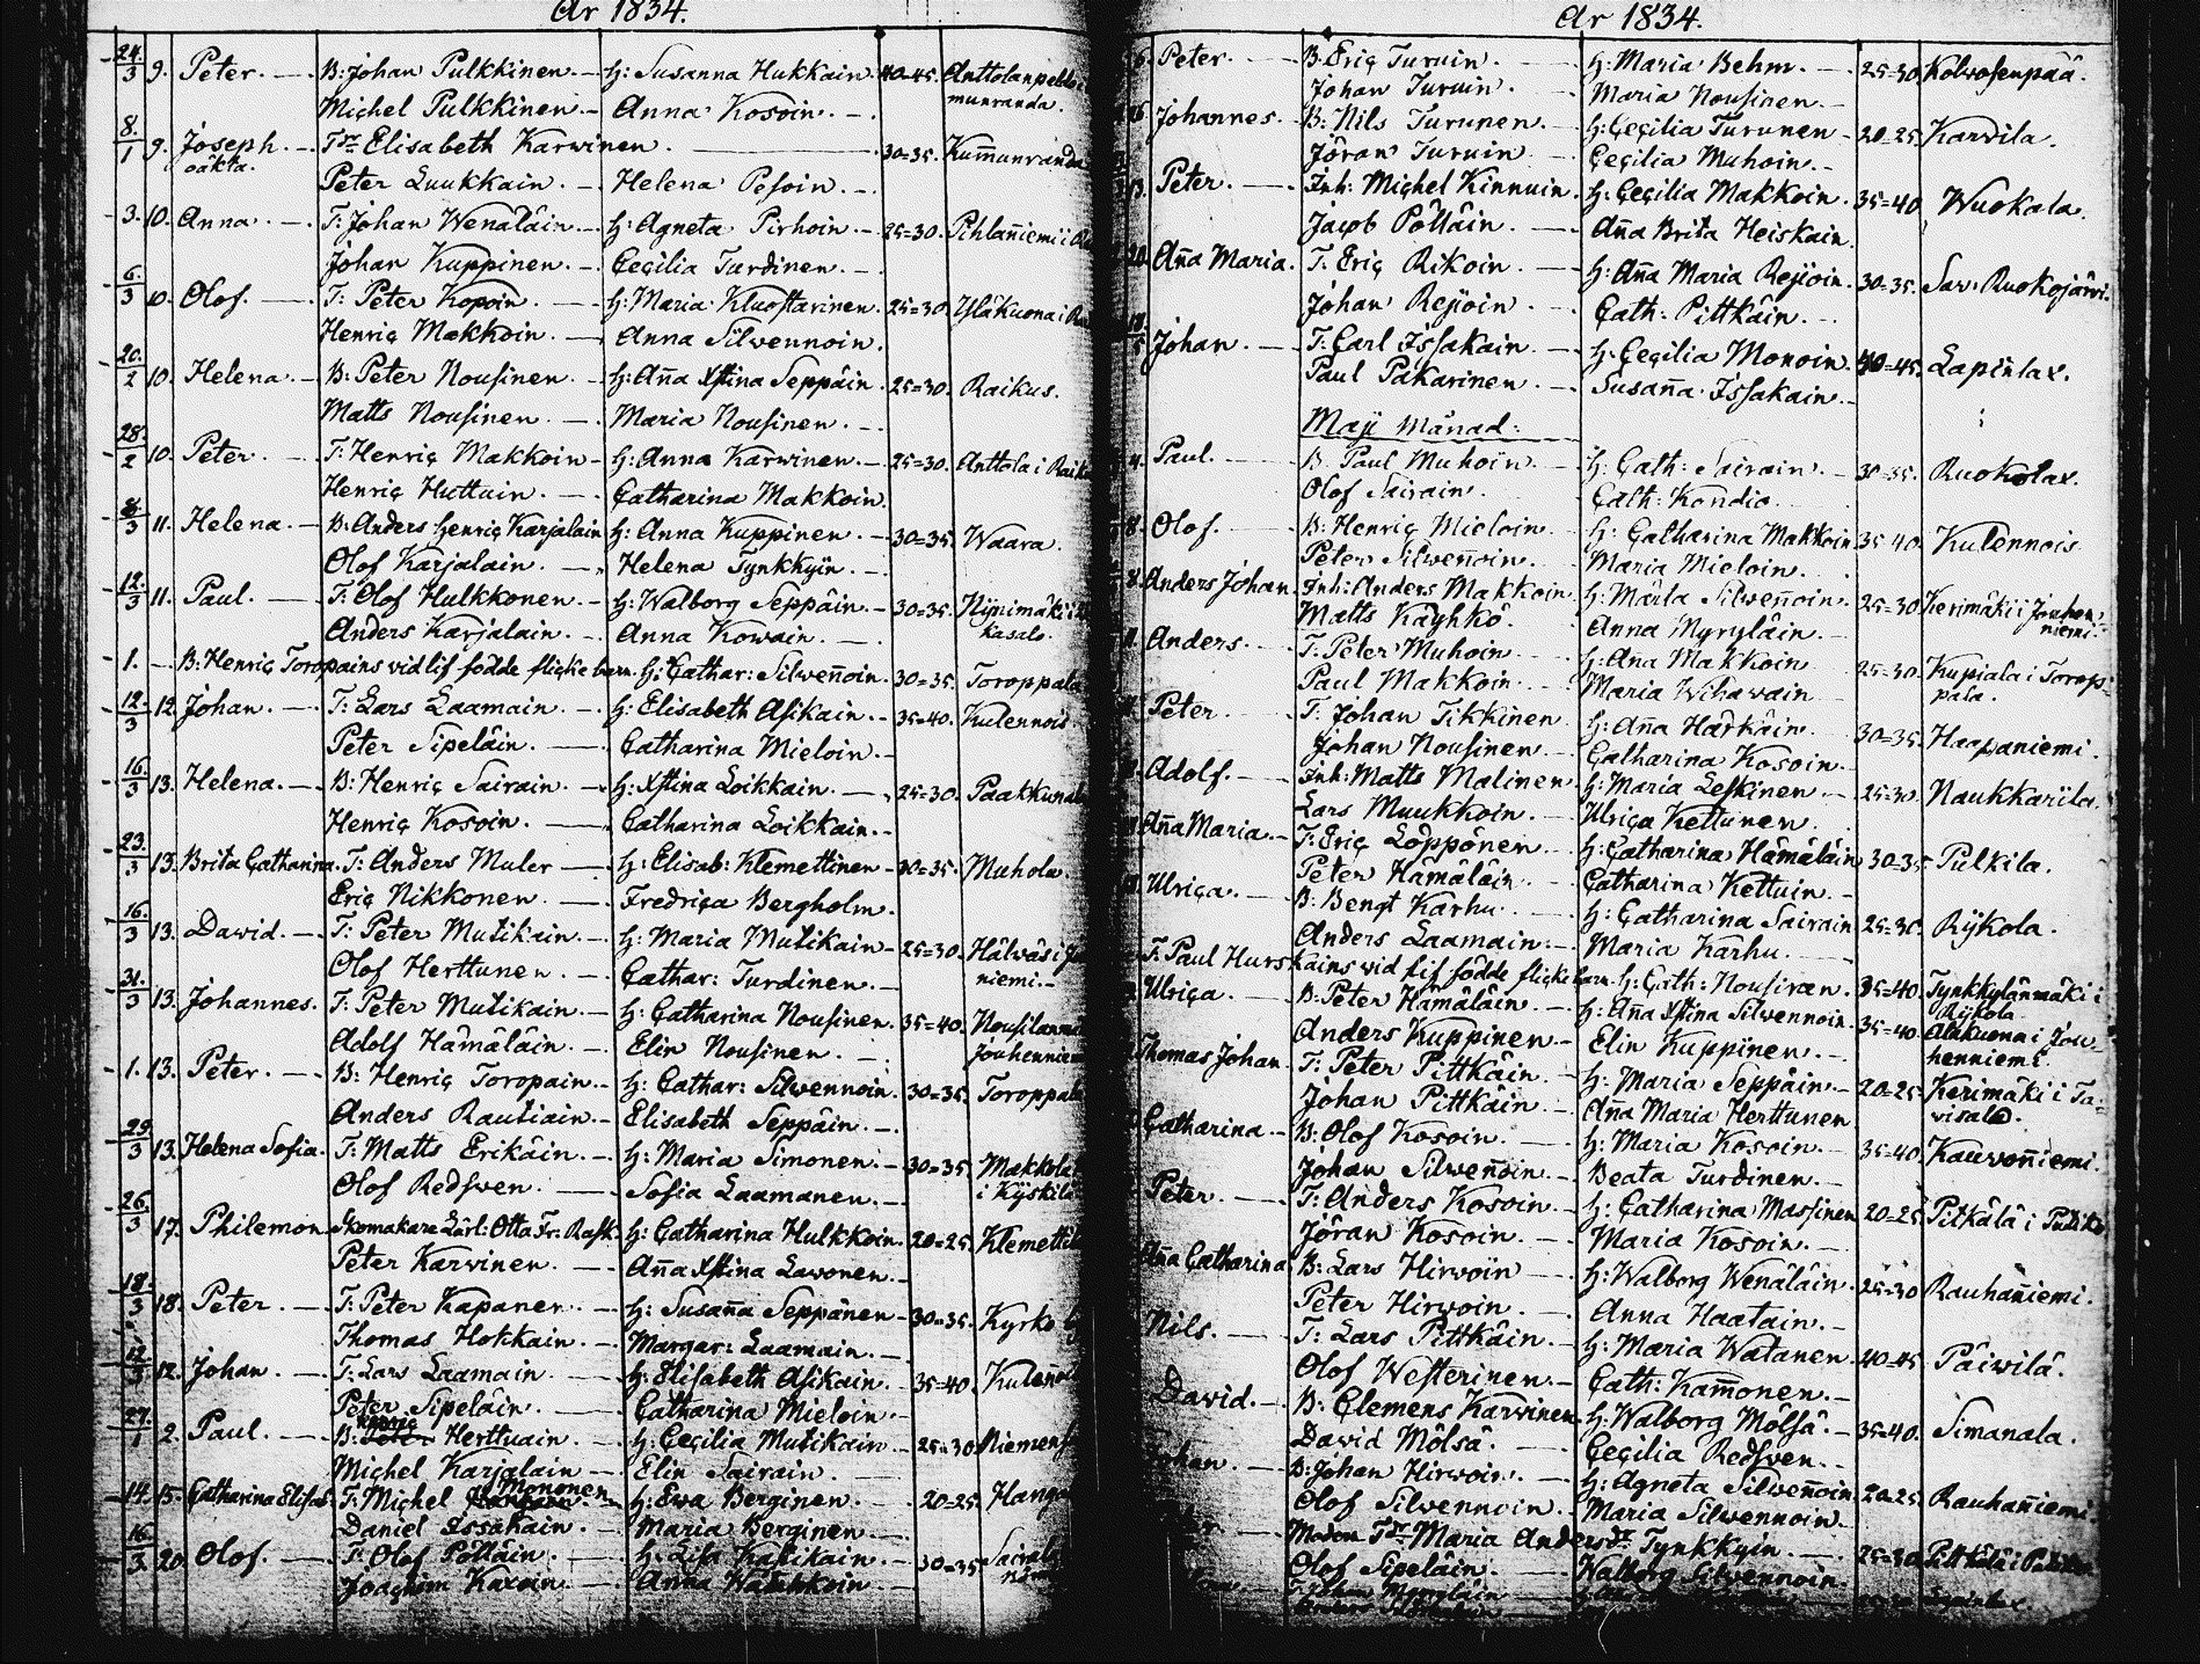 År 1834.
24./3 9. Peter. — B: Johan Pulkkinen. — H: Susanna Hukkain. 40=45. Anttolanpeldo i
Michel Pulkkinen. — Anna Kosoin. — munranda.
8./1 9. Joseph. — T:r Elisabeth Karwinen. — 30=35. Kum̄unranda
oäkta.
Peter Luukkain. — Helena Pesoin. —
3. 10. Anna. — T: Johan Wenäläin. — H: Agneta Pirhoin. — 25=30. Pihlan̄iemi i
Johan Kuppinen. — Ceçilia Turdinen. —
6./3 10. Olof. — T: Peter Kopoin. — H: Maria Kluostarinen. 25=30. Yläkuona i
Henriç Makkoin. — Anna Silvennoin.
20./2 10. Helena. — B: Peter Nousinen. — H: An̄a Xstina Seppäin. 25=30. Raikus.
Matts Nousinen. — Maria Nousinen. —
28./2 10. Peter. — T: Henriç Makkoin — H: Anna Karwinen. — 25=30. Anttola i Raiku
Henriç Huttuin. — Catharina Makkoin.
8./3 11. Helena. — B: Anders Henriç Karjalain H: Anna Kuppinen. — 30=35. Waara.
Olof Karjalain. — Helena Tynkkyin. —
12./3 11. Paul. — T: Olof Hulkkonen. — H: Walborg Seppäin. — 30=35. Nynimäki i
Anders Karjalain. — Anna Kowain. — kasalo.
1. — B: Henriç Toropains vid lif födde flicke barn. H: Cathar: Silwen̄oin. 30=35. Toroppala
12./3 12. Johan. — T: Lars Laamain. — H: Elisabeth Asikain. — 35=40. Kulennois
Peter Sipeläin. — Catharina Mieloin. —
16./3 13. Helena. — B: Henriç Sairain. — H: Xstina Loikkain. — 25=30. Paakkunal
Henriç Kosoin. — Catharina Loikkain. —
23./3 13. Brita Catharina. T: Anders Muler — H: Elisab: Klemettinen — 30=35. Muhola.
Eriç Nikkonen. — Fredriça Bergholm.
16./3 13. David. — T: Peter Mutikain. — H: Maria Mutikain — 25=30. Hälwäs i
Olof Herttunen. — Cathar: Turdinen. — niemi. —
31./3 13. Johannes. T: Peter Mutikain. — H: Catharina Nousinen. 35=40. Nousilanmä
Adolf Hämäläin. — Elin Nousinen. — Jouhenniem
1. 13. Peter. — B: Henriç Toropain. — H: Cathar: Silwennoin. 30=35. Toroppala
Anders Rautiain. — Elisabeth Seppäin. —
29./3 13. Helena Sofia. T: Matts Erikäin. — H: Maria Simonen. — 30=35. Makkola
Olof Redsven. — Sofia Laamanen. — i Kyskilä
26./3 17. Philemon Skomakare Lärl: Otto Fr: Rask. H: Catharina Hulkkoin. 20=25. Klemetti
Peter Karvinen. — An̄a Xstina Lavonen. —
18./3 18. Peter. — T: Peter Kapanen. — H: Susan̄a Seppänen — 30=35. Kyrko
Thomas Hokkain. — Margar: Laamain. —
12./3 12. Johan. — T: Lars Laamain. — H: Elisabeth Asikain. — 35=40. Kulen̄oi
Peter Sipeläin. — Catharina Mieloin. —
27./1 2. Paul. — B: Henriç Herttuain. — H: Ceçilia Mutikain — 25=30 Niemens
Michel Karjalain — Elin Sairain. —
14. 15. Catharina Elisab. T: Michel Mononen H: Ewa Berginen. — 20=25. Hanga
Daniel Issakain. — Maria Berginen. —
16./3 20. Olof. — T: Olof Pölläin. — H: Lisa Kastikain. — 30=35 Sairal
Joaçhim Kaxoin. — Anna
År 1834.
Peter. — B: Eriç Turuin. — H: Maria Behm. — 25=30 Kolvosenpää.
Johan Turuin. — Maria Nousinen. —
Johannes. — B: Nils Turunen. — H: Ceçilia Turunen — 20=25. Karvila.
Jöran Turuin. — Ceçilia Muhoin. —
13. Peter. — Inh: Michel Kinnuin. H: Ceçilia Makkoin. 35=40. Wuokala.
Jacob Pölläin. — An̄a Brita Heiskain.
20. An̄a Maria. T: Eriç Rikoin. — H: An̄a Maria Reijoin. 30=35. Sav: Ruokojärvi.
Johan Reijoin. — Cath: Pittkäin. —
Johan. — T: Carl Issakain. — H: Ceçilia Monoin. 40=45. Lapinlax.
Paul Pakarinen. — Susan̄a Issakain. —
Maji månad:
4. Paul. — B: Paul Muhoin. — H: Cath: Sairain. — 30=35. Ruokolax.
Olof Sairain. — Cath: Kondia.
8. Olof. — B: Henriç Mieloin. H: Catharina Makkoin 35=40. Kulennois
Peter Silwen̄oin. — Maria Mieloin.
8. Anders Johan. Inh: Anders Makkoin. H: Märta Silwen̄oin. 25=30 Kerimäki i Jouhen-
Matts Käyhkö. Anna Myryläin. — niemi.
11. Anders. — T: Peter Muhoin — H: An̄a Makkoin 25=30. Kupiala i Torop-
Paul Makkoin. — Maria Wihawain pala.
Peter. — T: Johan Tikkinen H: An̄a Härkäin. 30=35. Haapaniemi.
Johan Nousinen. — Catharina Kosoin. —
Adolf. — Inh: Matts Malinen. H: Maria Leskinen. — 25=30. Naukkarila.
Lars Muukkoin. — Ulriça Kettunen.
An̄a Maria. — T: Eriç Löppönen. — H: Catharina Hämäläin 30=35 Pulkila.
Peter Hämäläin. — Catharina Kettuin. —
Ulriça. — B: Bengt Karhu. — H: Catharina Sairain 25=30. Rykola.
Anders Laamain. — Maria Karhu. —
T: Paul Hurskains vid lif födde flicke barn. H: Cath: Nousiran. 35=40. Tynkkylänmäki i
Rykola.
Ulriça. — B: Peter Hämäläin. — H: An̄a Xstina Silwennoin. 35=40. Alakuona i Jou-
Anders Kuppinen. — Elin Kuppinen. — henniemi.
Thomas Johan. T: Peter Pittkäin. — H: Maria Seppäin. — 20=25. Kerimäki i Ta-
Johan Pittkäin. — An̄a Maria Herttunen visalo.
Catharina. — B: Olof Kosoin. — H: Maria Kosoin. — 35=40. Kauvon̄iemi.
Johan Silwen̄oin. — Beata Turdinen. —
Peter. — T: Anders Kosoin. — H: Catharina Massinen 20=25 Pitkälä i
Jöran Kosoin. — Maria Kosoin. —
An̄a Catharina B: Lars Hirwoin — H: Walborg Wenäläin. 25=30 Rauhan̄iemi.
Peter Hirwoin. — Anna Haatain. —
Nils. — T: Lars Pittkäin. — H: Maria Watanen. 40=45 Päiwilä.
Olof Westerinen. — Cath: Kam̄onen. —
David. — B: Clemens Karwinen. H: Walborg Mölsä. — 35=40. Simanala.
David Mölsä. — Ceçilia Redsven. —
Johan. — B: Johan Hirwoin. — H: Agneta Silwen̄oin. 20=25 Rauhan̄iemi.
Olof Silvennoin. Maria Silwennoin. —
T:r Maria Anders d:r Tynkkyin. — 25=30. Pittkälä i
Olof Sipeläin. — Walborg Silwennoin.